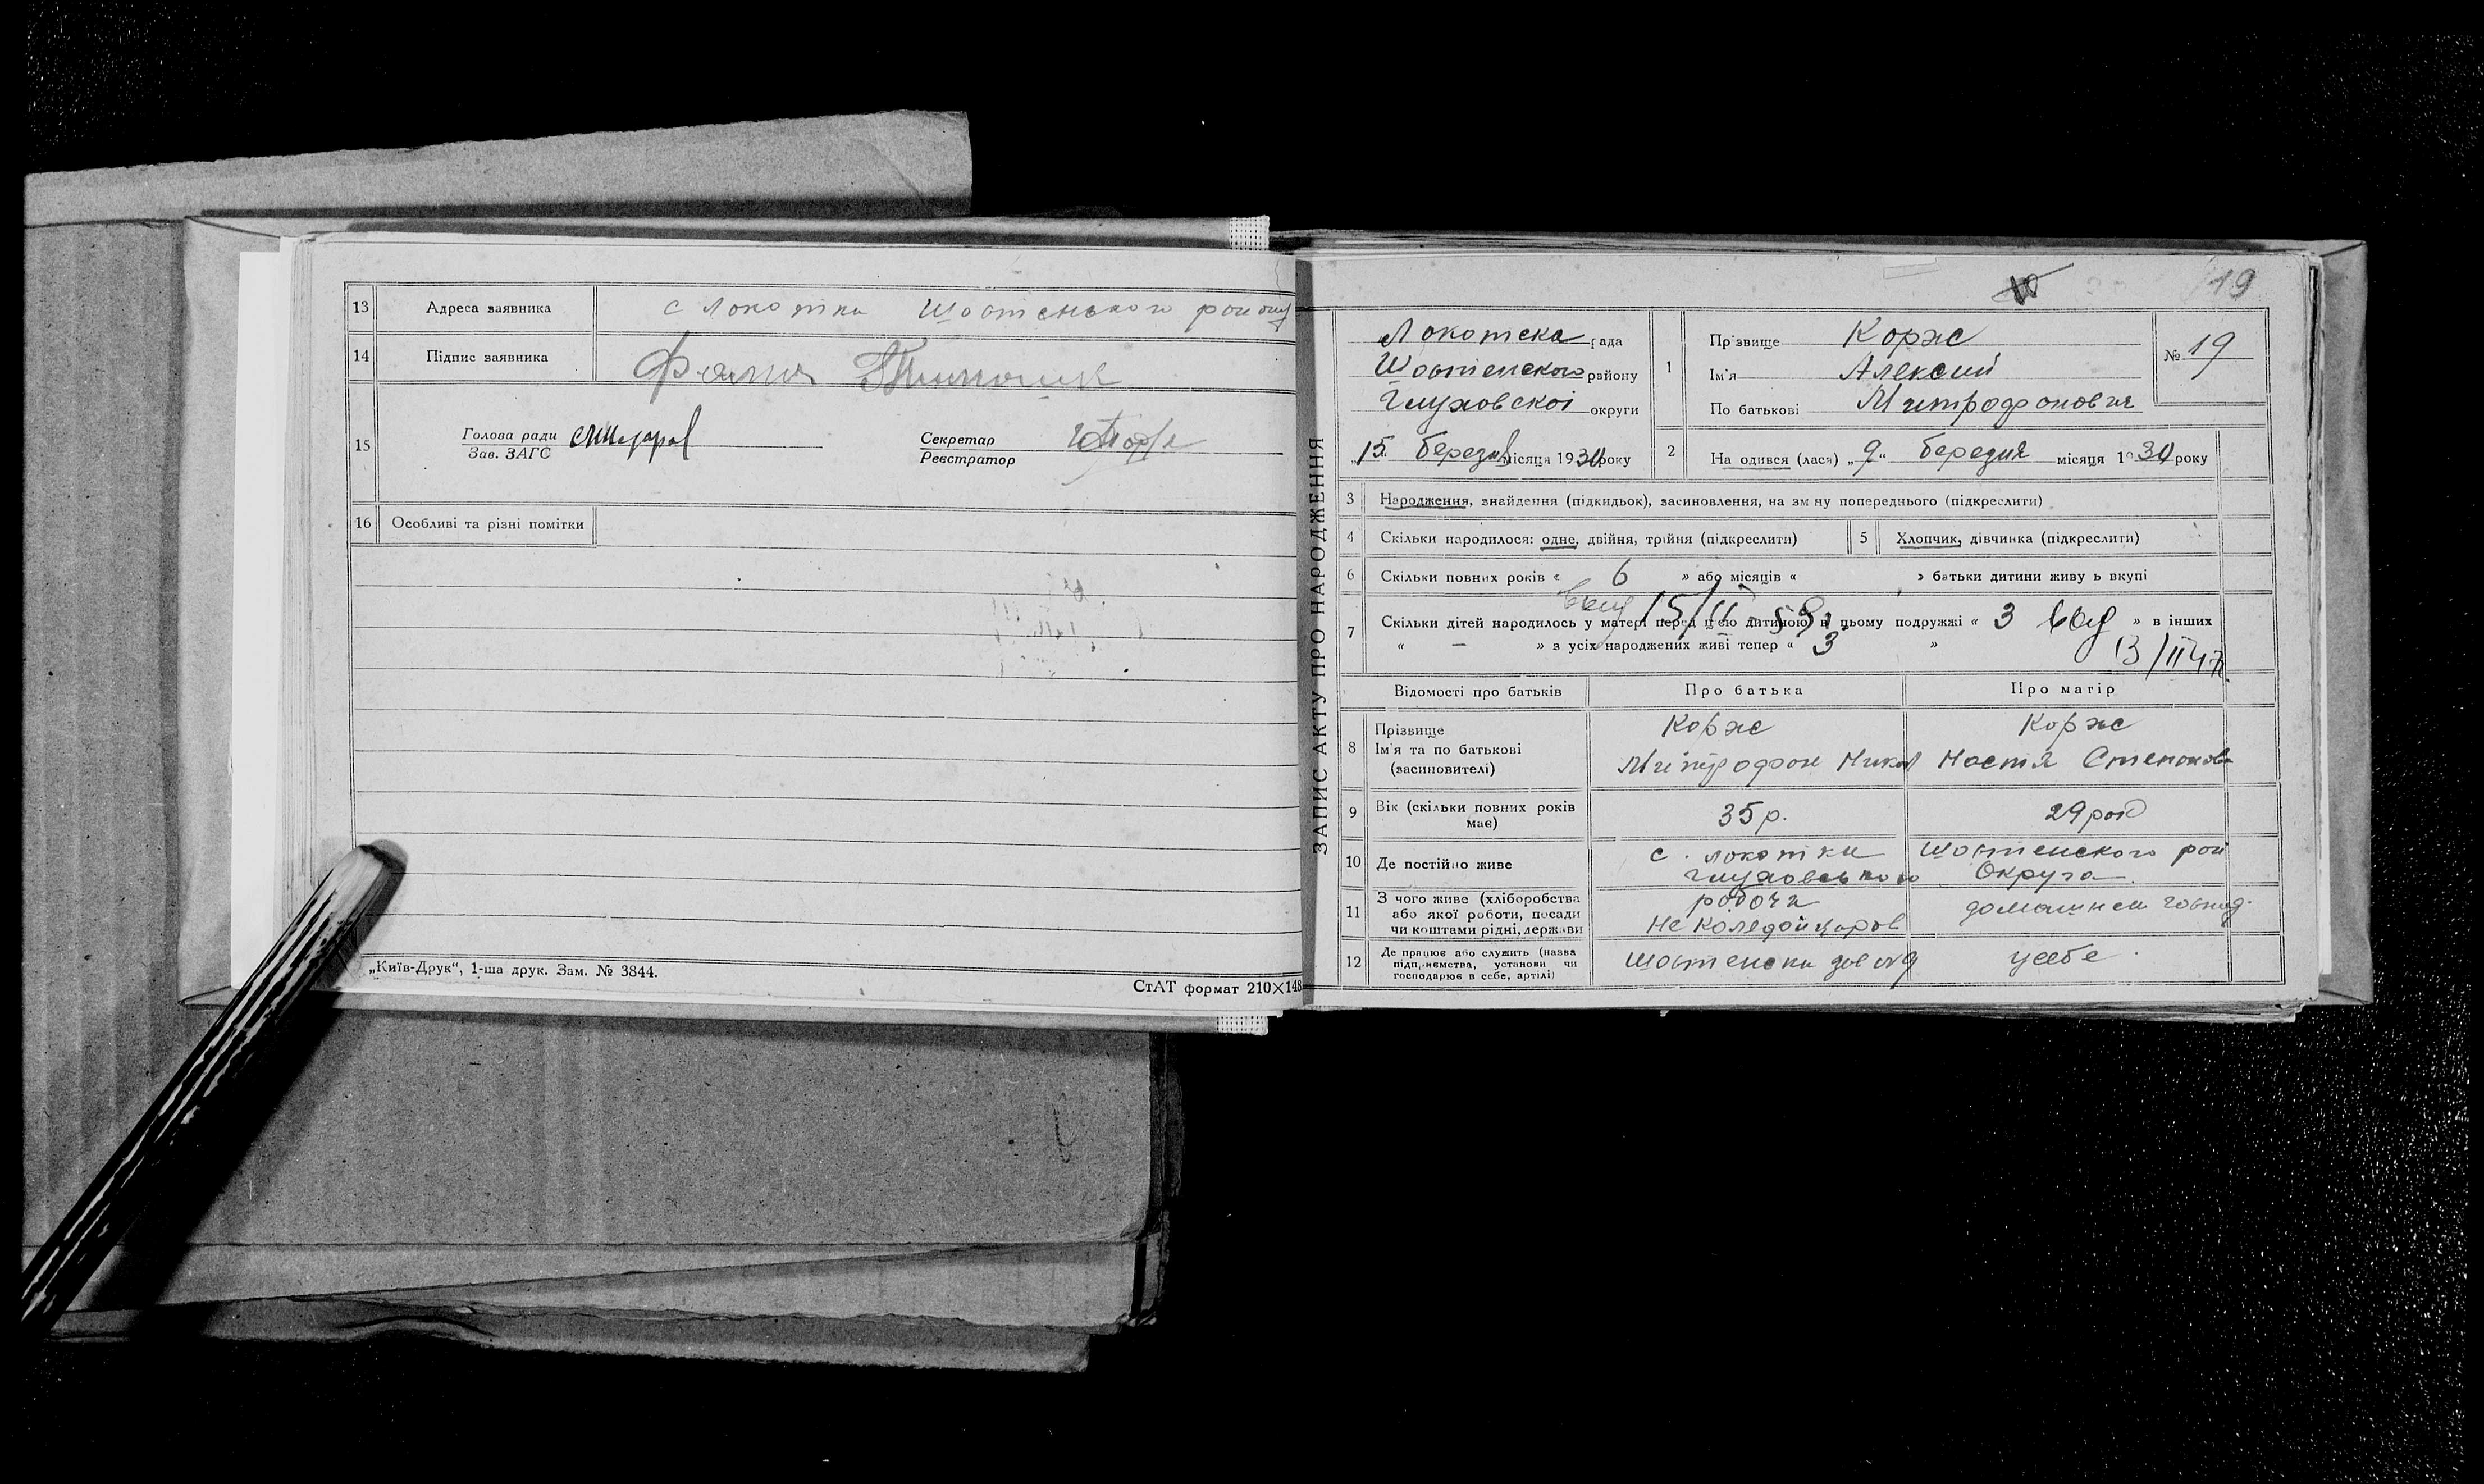 13 Адреса заявника с Локотки Шостенського району
14 Підпис заявника
15 Голова ради
Зав. ЗАГС
Секретар
Реєстратор
16 Особливі та різні помітки
„Київ-Друк“, 1-ша друк. Зам. № 3844.
СтАТ формат 210×148
ЗАПИС АКТУ ПРО НАРОДЖЕННЯ
19
Локотска рада
Шостенского району
Глуховскоі округи
„15„ березня місяця 1930 року
1 Прізвище Корж
Ім'я Алексий
По батькові Митрофанович
№ 19
2 Народився (лася) „9“ березня місяця 1930 року
3 Народження, знайдення (підкидьок), засиновлення, на зміну попереднього (підкреслити)
4 Скільки народилося: одне, двійня, трійня (підкреслити)
5 Хлопчик, дівчинка (підкреслити)
6 Скільки повних років « 6 » або місяців « » батьки дитини живуть вкупі
7 Скільки дітей народилось у матері перед цією дитиною в цьому подружжі « 3 » в інших
« — » з усіх народжених живі тепер « 3 »
13/II 47
Відомості про батьків Про батька Про матір
8 Прізвище
Ім'я та по батькові
(засиновителі)
Корж
Митрофан Никол
Корж
Настя Степанова
9 Вік (скільки повних років має) 35 р. 29 рок
10 Де постійно живе с. Локотки Шостенского рай
Глуховського Округа
11 З чого живе (хліборобства
або якої роботи, посади
чи коштами рідні, держави
робочи
домашнем господ.
12 Де працює або служить (назва
підприємства, установи чи
господарює в себе, артілі)
Шостенски завод
усебе